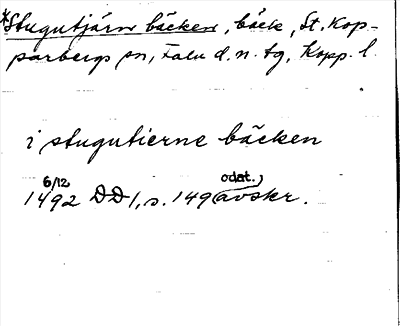 *Stugutjärn bäcken, bäck, St. Kop-
parbergs sn, Falu d.n. tg, Kopp. l.
i stugutierne bäcken
6/12 odat.)
1492 DD1, s. 149 (avskr.